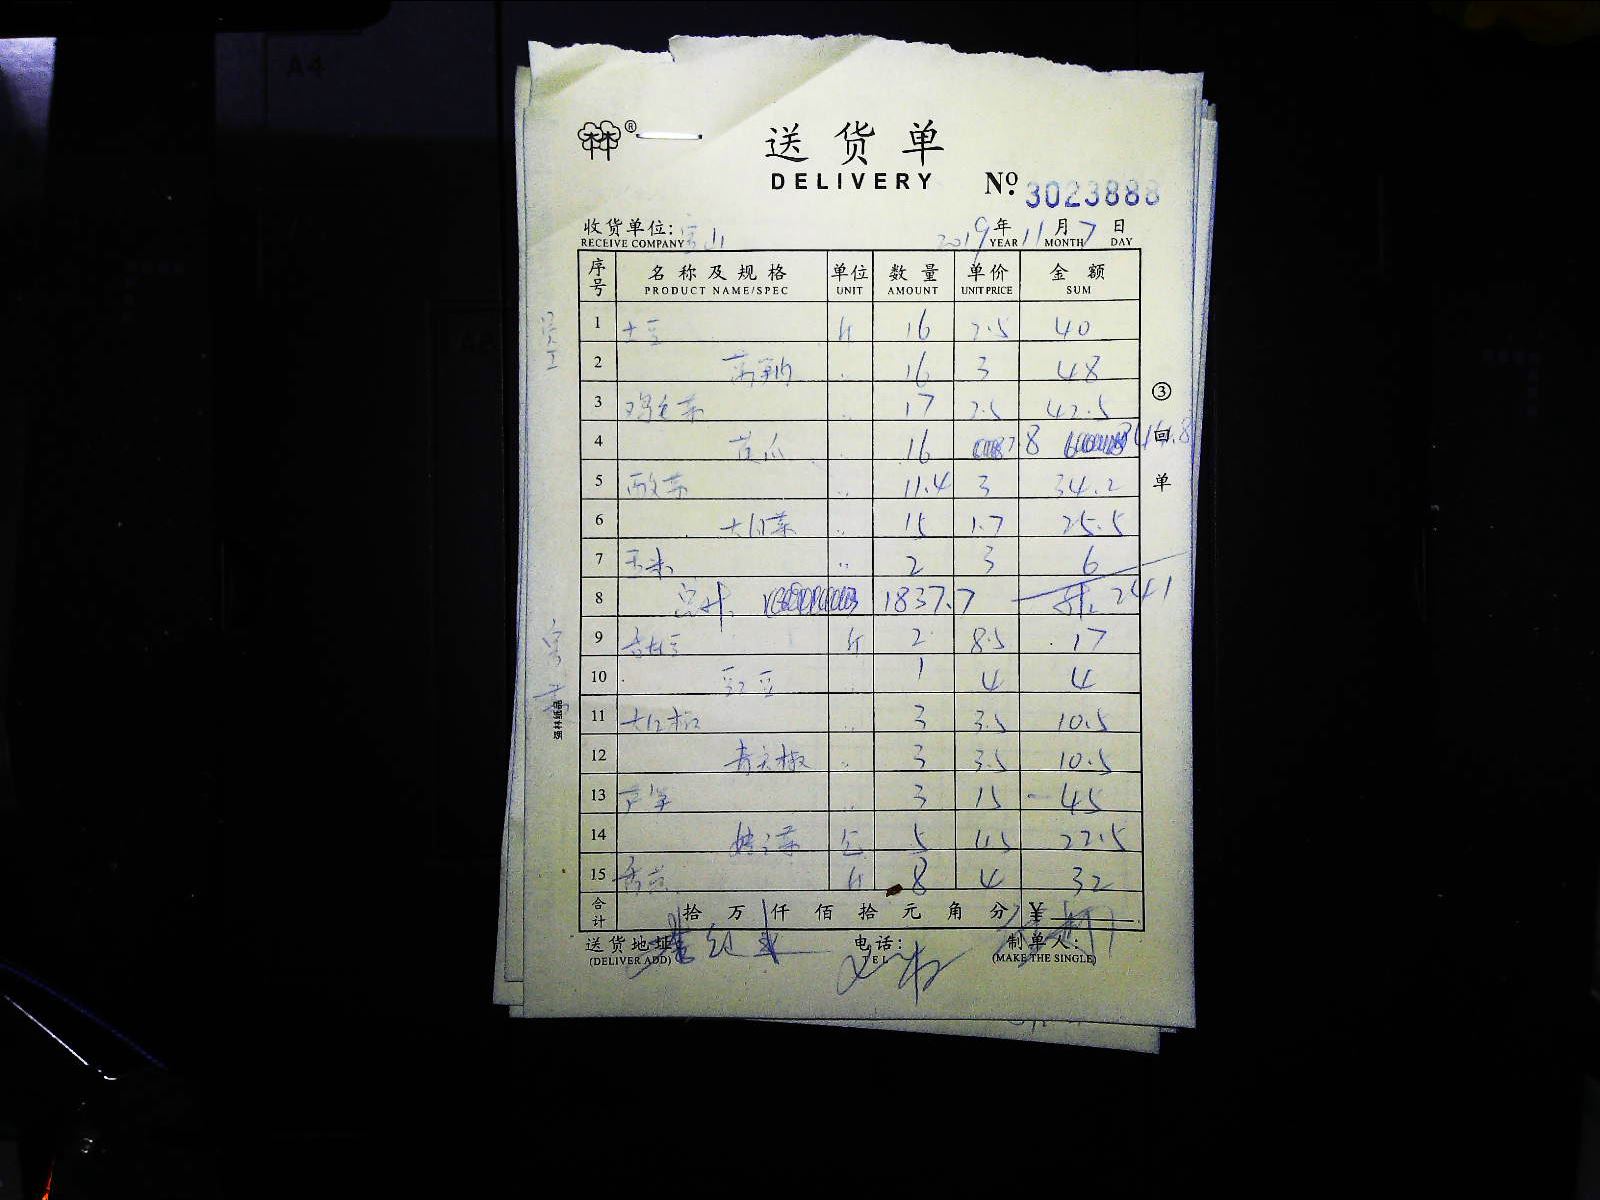 A4
送货单
DELIVERY
№ 3023888
收货单位: 宝山 2019年11月7日
RECEIVE COMPANY YEAR MONTH DAY
序号 名称及规格 单位 数量 单价 金额
PRODUCT NAME/SPEC UNIT AMOUNT UNIT PRICE SUM
1 土豆 斤 16 2.5 40
2 莴笋 16 3 48
3 鸡毛菜 17 2.5 42.5
4 黄瓜 16 2.8 44.8
5 酸菜 11.4 3 34.2
6 大白菜 15 1.7 25.5
7 玉米 2 3 6
8 总计 1837.7 241
9 斤 2 8.5 17
10 豇豆 1 4 4
11 大红椒 3 3.5 10.5
12 青尖椒 3 3.5 10.5
13 芦笋 3 15 45
14 娃娃菜 包 5 4.5 22.5
15 斤 8 4 32
合计 拾 万 仟 佰 拾 元 角 分 ¥
送货地址 电话: 制单人:
(DELIVER ADD) TEL (MAKE THE SINGLE)
③回单
员工
强林纸品